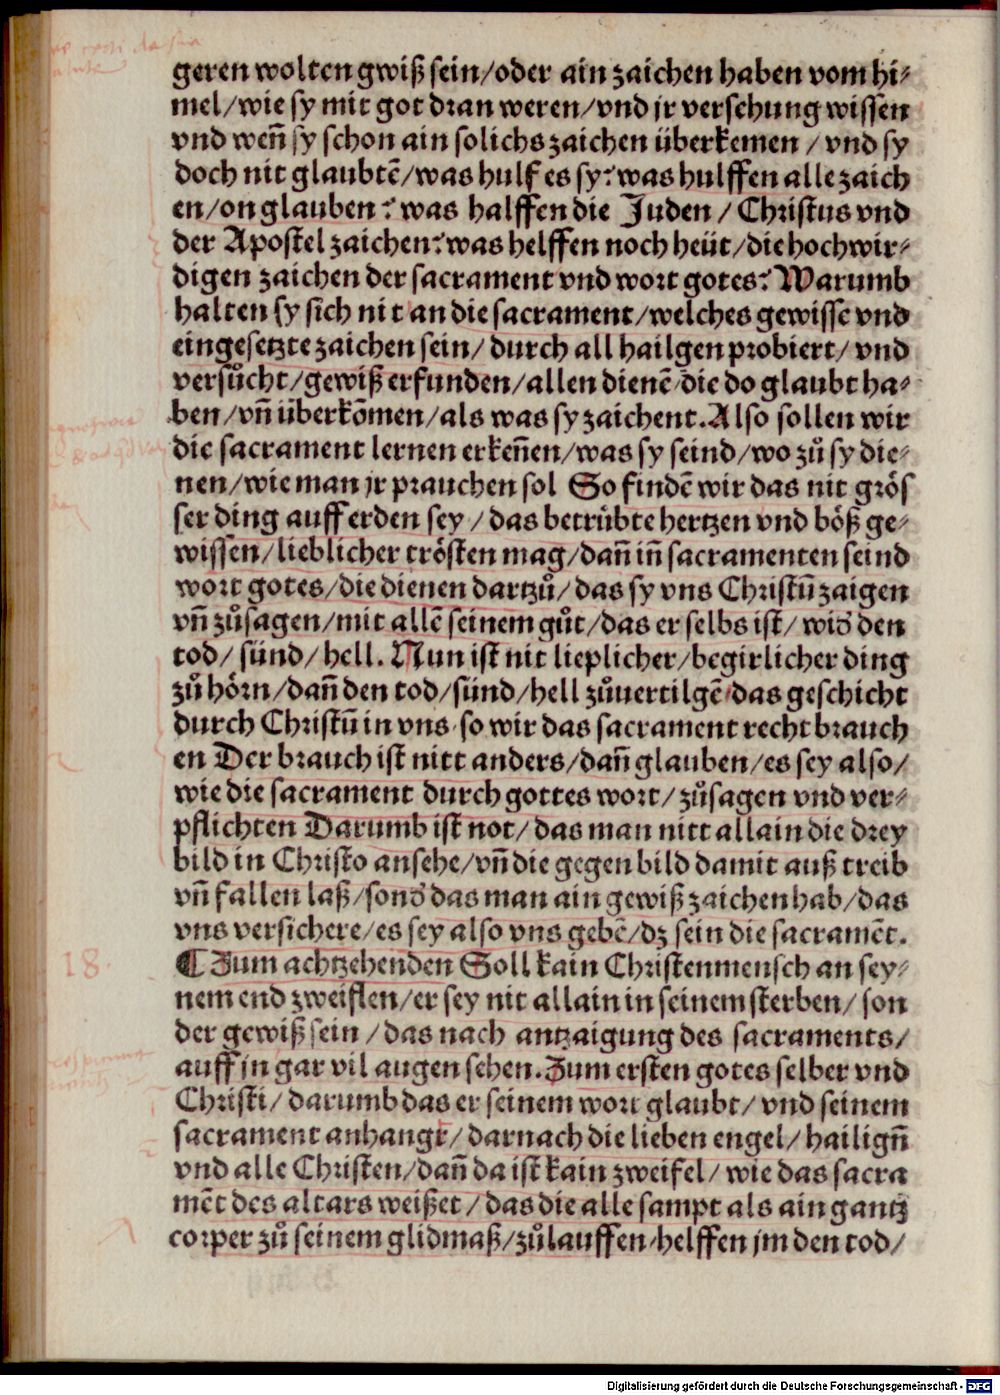 geren wolten gwiß sein/oder ain zaichen haben vom hi⸗
mel/wie sy mit got dran weren/vnd jr versehung wissen
vnd weñ sy schon ain solichs zaichen überkemen / vnd sy
doch nit glaubtē/was hulf es sy? was hulffen alle zaich
en/on glauben? was halffen die Juden / Christus vnd
der Apostel zaichen? was helffen noch heüt/die hochwir⸗
digen zaichen der sacrament vnd wort gotes? Warumb
halten sy sich nit an die sacrament/welches gewissē vnd
eingesetzte zaichen sein/ durch all hailgen probiert/ vnd
versůcht/gewiß erfunden/allen dienē/die do glaubt ha⸗
ben/vñ überkōmen/als was sy zaichent. Also sollen wir
die sacrament lernen erkeñen/was sy seind/wo zů sy die⸗
nen/wie man jr prauchen sol So findē wir das nit grös
ser ding auff erden sey / das betrübte hertzen vnd böß ge⸗
wissen/lieblicher trösten mag/dañ iñ sacramenten seind
wort gotes/die dienen dartzů/ das sy vns Christū zaigen
vñ zůsagen/mit allē seinem gůt/das er selbs ist/ wid̕ den
tod/ sünd/ hell. Nun ist nit lieplicher/begirlicher ding
zů hörn/dañ den tod/sünd/hell zůuertilgē/das geschicht
durch Christū in vns/so wir das sacrament recht brauch
en Der brauch ist nitt anders/dañ glauben/es sey also/
wie die sacrament durch gottes wort/zůsagen vnd ver⸗
pflichten Darumb ist not/ das man nitt allain die drey
bild in Christo ansehe/vñ die gegen bild damit auß treib
vñ fallen laß/sond̕ das man ain gewiß zaichen hab/das
vns versichere/es sey also vns gebē/dz sein die sacramēt.
¶ Zum achtzehenden Soll kain Christenmensch an sey⸗
nem end zweiflen/er sey nit allain in seinem sterben/ son
der gewiß sein / das nach antzaigung des sacraments/
auff jn gar vil augen sehen. Zum ersten gotes selber vnd
Christi/ darumb das er seinem wort glaubt/ vnd seinem
sacrament anhangt/ darnach die lieben engel/ hailigñ
vnd alle Christen/dañ da ist kain zweifel/ wie das sacra
mēt des altars weißet / das die alle sampt als ain gantz
corper zů seinem glidmaß/zůlauffen/helffen jm den tod/
18.
Digitalisierung gefördert durch die Deutsche Forschungsgemeinschaft - DFG